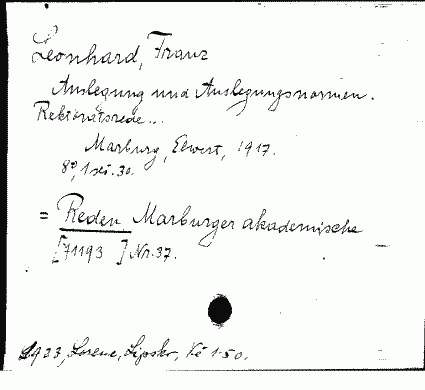 Leonhard, Franz
Auslegung und Auslegungsnormen.
Rektoratsrede...
Marburg, Elwert, 1917.
8º, 1 30.
= Reden Marburger akademische
[71193 ] Nr. 37.
1923, Lorenz, Lipsko, Kč 1·50.